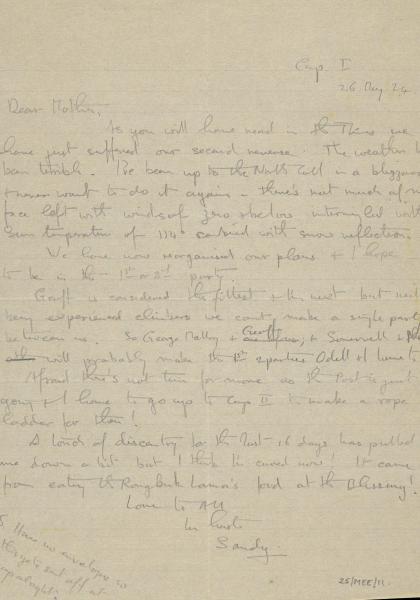 Camp. I
26 May 24.
Dear Mother,
As you will have read in the Times we
have just suffered our second reverse. The weather
been terrible. I've been up to the North Coll in a blizzard
& never want to do it again - there's not much of my
face left with winds of zero & below intermingled with
Sun temperature of 114° combined with snow reflection.
We have now reorganised our plans & I hope
to be in the 1st or 2nd party.
Geoff is considered the fittest & the next but neither
being experienced climbers we cant make a single party
between us. So George Mallory & Geoff; & Somervell &
will probably make the 1st 2 parties Odell & I
Afraid there's not time for more as the Post is just
going & I have to go up to Camp II to make a rope
ladder for them!
A touch of dysentry for the last 16 days has pulled
me down a bit but I think I'm cured now! It came
from eating the Rongbuk Lama's food at the Blessing!
Love to All
In haste
Sandy
Have no envelope so
this gets sent off at
25/MEE/11.